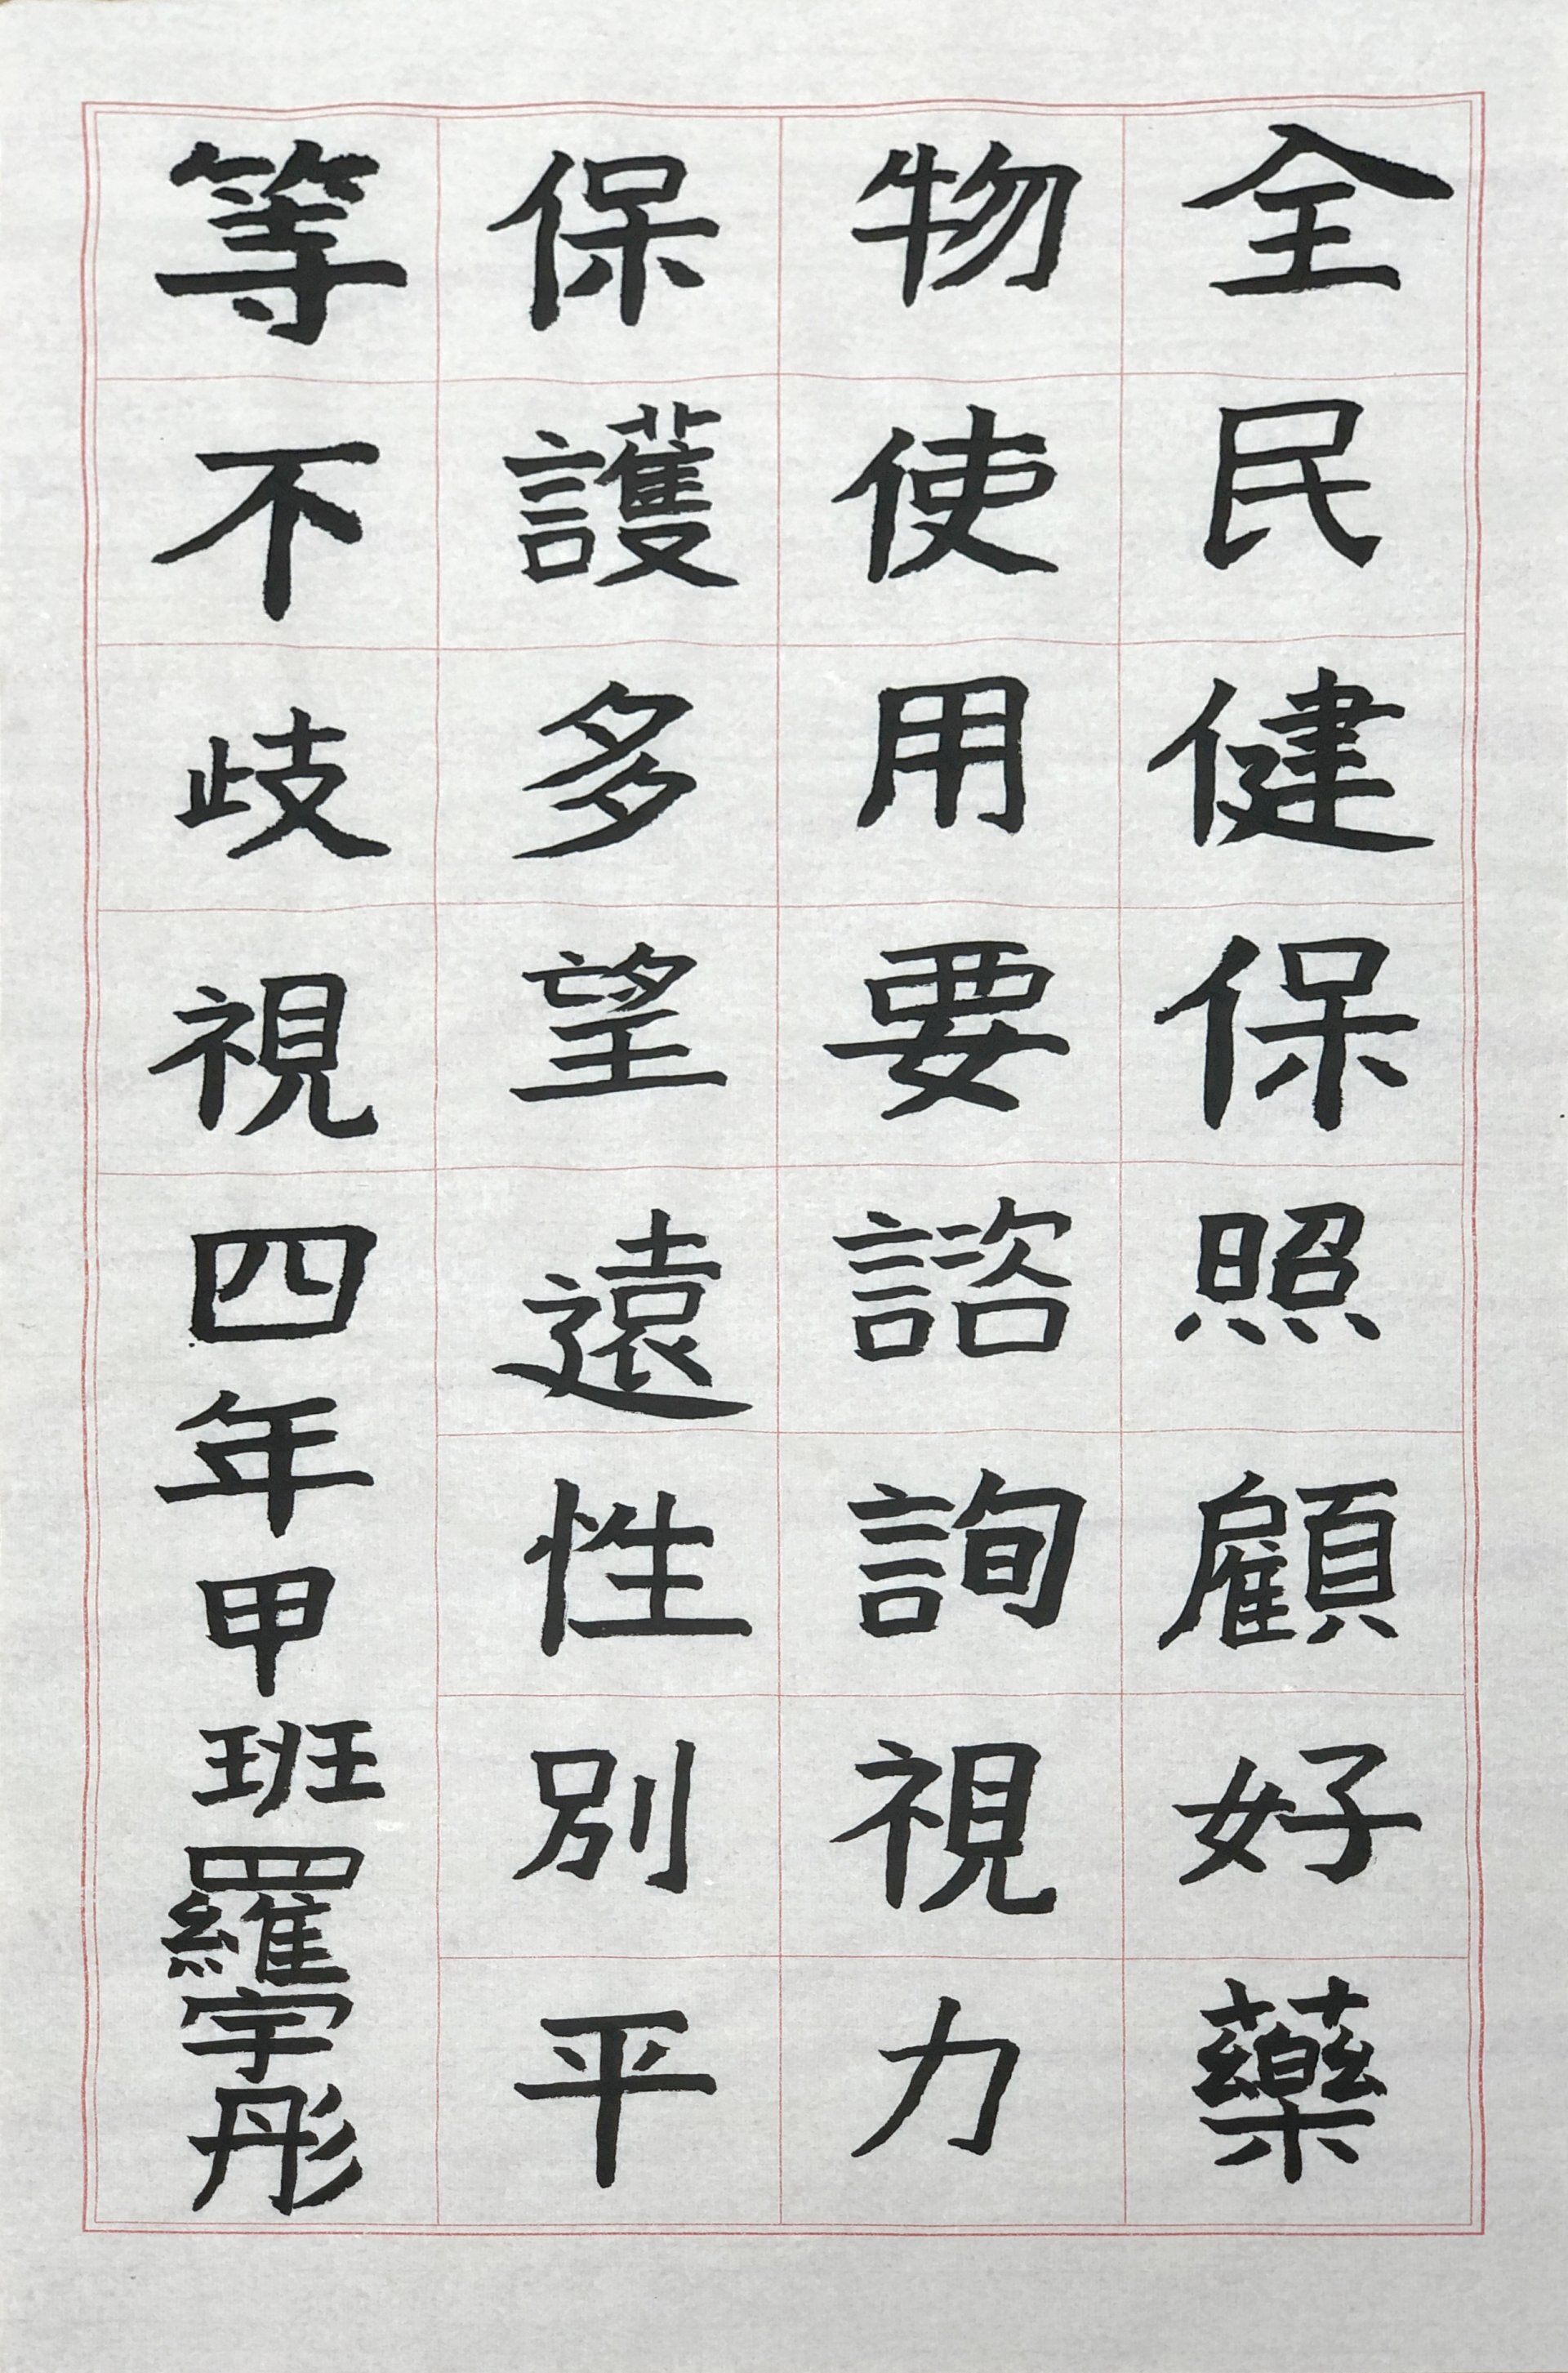 全民健保照顧好藥
物使用要諮詢視力
保護多望遠性別平
等不歧視四年甲班羅宇彤